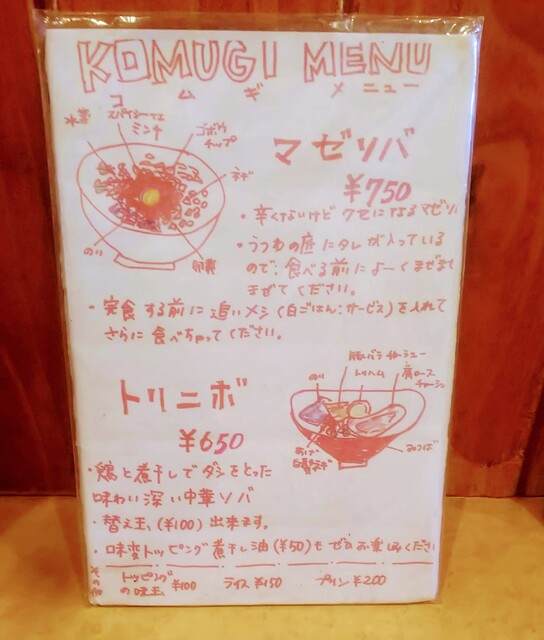 KOMUGI MENU
コムギ メニュー
水菜
スパイシーな
ミンチ
ゴボウ
チップ
ネギ
のり
卵黄
マゼソバ
¥750
・辛くないけどクセになるマゼソバ
・うつわの底にタレが入っている
ので、食べる前によーくまぜまぜ
まぜてください。
・完食する前に追いメシ(白ごはん:サービス)を入れて
さらに食べちゃってください。
トリニボ
¥650
のり
豚バラチャーシュー
トリハム
肩ロース
チャーシュー
あげ
白髪ネギ
みつば
・鶏と煮干しでダシをとった
味わい深い中華ソバ
・替え玉(¥100)出来ます。
・味変トッピング煮干し油(¥50)もぜひお楽しみください
その他
トッピング
の味玉 ¥100
ライス ¥150
プリン ¥200